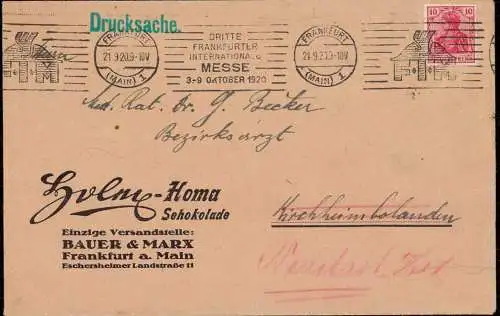 Drucksache.
FRANKFURT
21.9.20.9-10V
(MAIN) 1
DRITTE
FRANKFURTER
INTERNATIONALE
MESSE
3-9 OKTOBER 1920
FRANKFURT
21.9.20.9-10V
(MAIN) 1
10 10
Med. Rat. Dr. G. Becker
Bezirksarzt
Holm-Homa
Schokolade
Einzige Versandstelle:
BAUER & MARX
Frankfurt a. Main
Eschersheimer Landstraße 11
Kirchheimbolanden
Neustadt